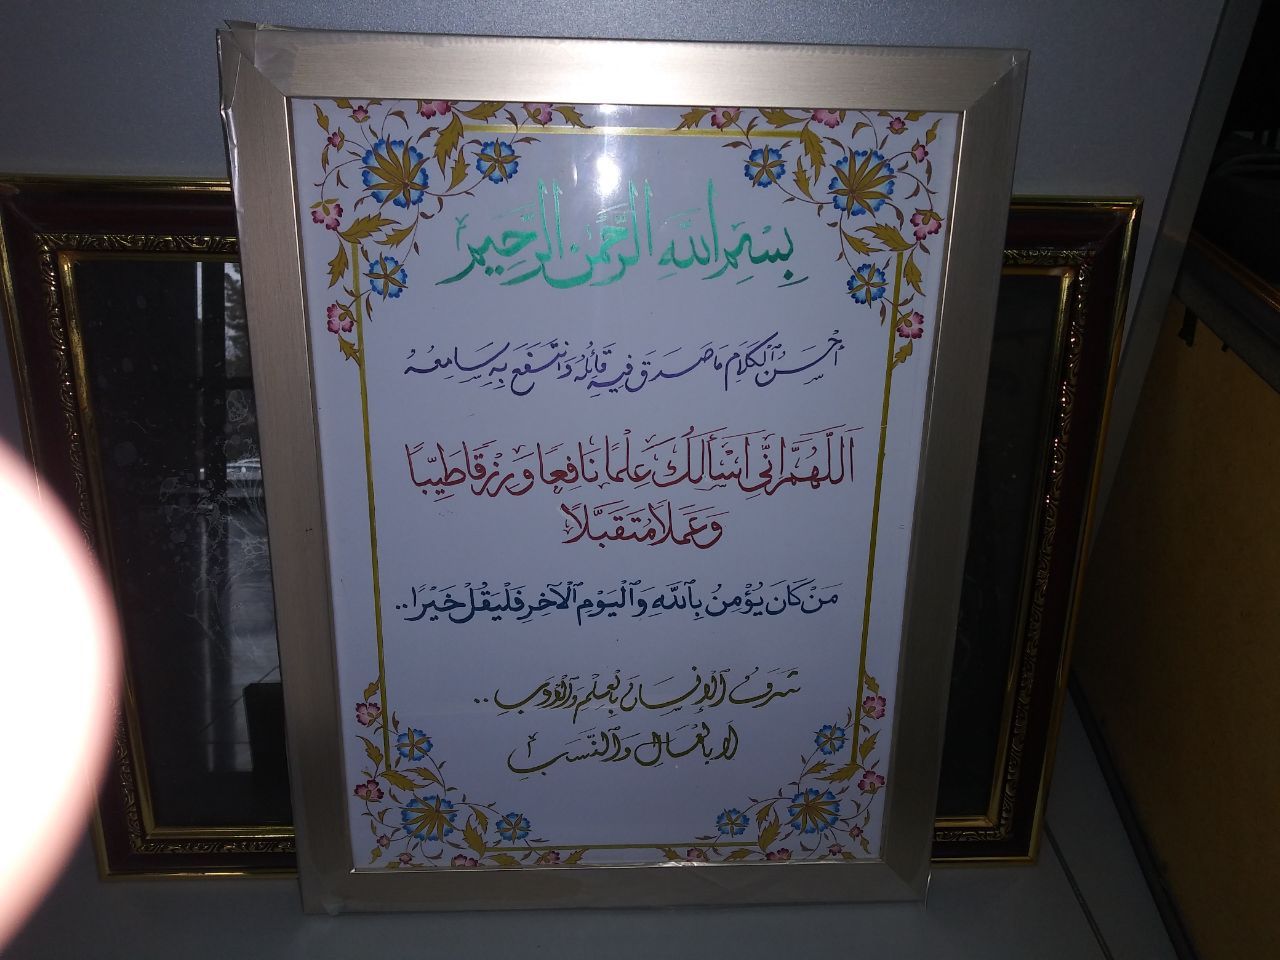 بِسْمِ اللَّهِ الرَّحْمَنِ الرَّحِيمِ
أَحْسَنُ ٱلْكَلَامِ مَا صَدَقَ فِيهِ قَائِلُهُ وَانْتَفَعَ بِهِ سَامِعُهُ
اَللَّهُمَّ اِنِّي اَسْأَلُكَ عِلْمًا نَافِعًا وَرِزْقًا طَيِّبًا
وَعَمَلًا مُتَقَبَّلًا
مَنْ كَانَ يُؤْمِنُ بِٱللَّهِ وَٱلْيَوْمِ ٱلْآخِرِ فَلْيَقُلْ خَيْرًا..
شَرَفُ ٱلْإِنْسَانِ بِالْعِلْمِ وَٱلْأَدَبِ..
لَا بِالْمَالِ وَٱلنَّسَبِ